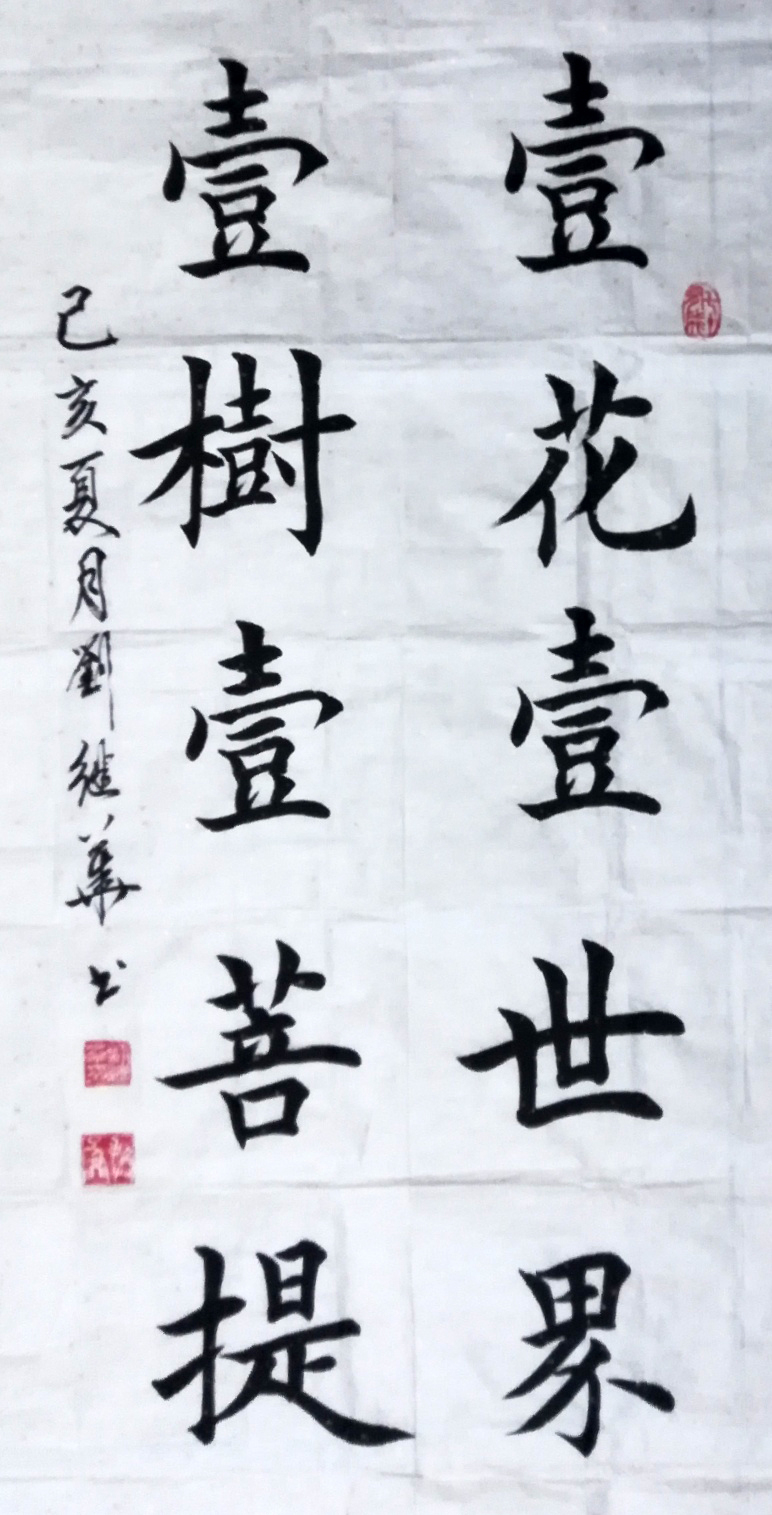 壹花壹世界
壹樹壹菩提
己亥夏月劉继華书